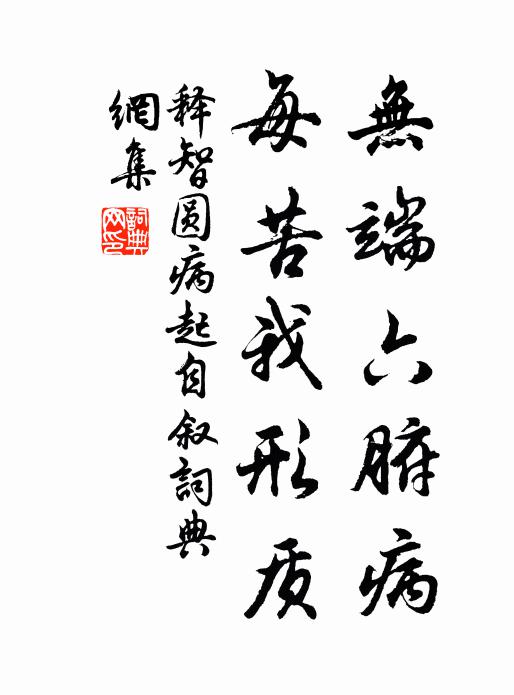 無端六腑病
每苦我形质
释智圆病起自叙詞典
網集
詞典
网印